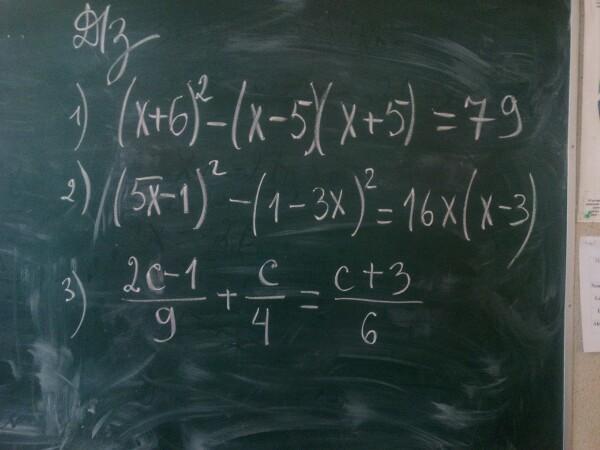 Д/з
1) (x+6)² - (x-5)(x+5) = 79
2) (5x-1)² - (1-3x)² = 16x(x-3)
3) \frac{2c-1}{9} + \frac{c}{4} = \frac{c+3}{6}